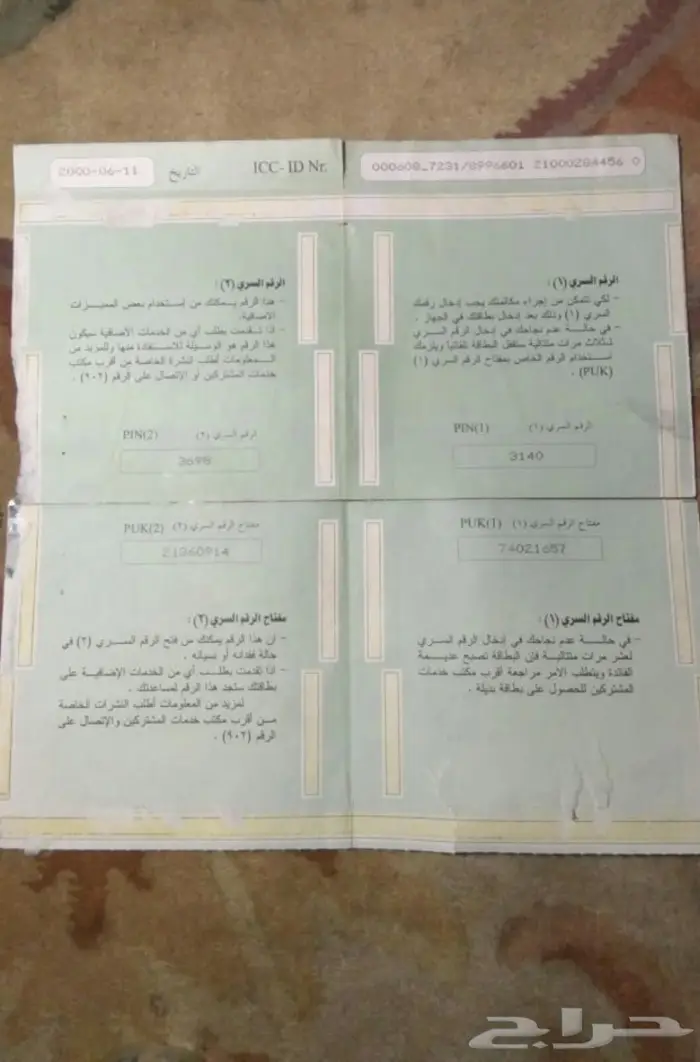 000608_7231/8996601 21000284456 0
ICC- ID Nr.
التاريخ
2000-06-11
الرقم السري (١) :
- لكي تتمكن من إجراء مكالمتك يجب إدخال رقمك
السري (١) وذلك بعد إدخال بطاقتك في الجهاز .
- في حالة عدم نجاحك في إدخال الرقم السري
ثلاث مرات متتالية ستقفل البطاقة تلقائيا ويلزمك
استخدام الرقم الخاص بمفتاح الرقم السري (١)
(PUK) .
الرقم السري (١) PIN(1)
3140
الرقم السري (٢) :
- هذا الرقم يمكنك من إستخدام بعض المميزات
الاضافية.
- اذا تقدمت بطلب أي من الخدمات الأضافية سيكون
هذا الرقم هو الوسيلة للاستفادة منها وللمزيد من
المعلومات أطلب النشرة الخاصة من أقرب مكتب
خدمات المشتركين أو الإتصال على الرقم (٩٠٢) .
الرقم السري (٢) PIN(2)
3698
مفتاح الرقم السري (١) PUK(1)
74021657
مفتاح الرقم السري (١) :
- في حالة عدم نجاحك في إدخال الرقم السري
لعشر مرات متتالية فإن البطاقة تصبح عديمة
الفائدة ويتطلب الامر مراجعة أقرب مكتب خدمات
المشتركين للحصول على بطاقة بديلة .
مفتاح الرقم السري (٢) PUK(2)
21360914
مفتاح الرقم السري (٢) :
- ان هذا الرقم يمكنك من فتح الرقم السري (٢) في
حالة فقدانه أو نسيانه .
- اذا تقدمت بطلب أي من الخدمات الإضافية على
بطاقتك ستجد هذا الرقم لمساعدتك .
لمزيد من المعلومات أطلب النشرات الخاصة
من أقرب مكتب خدمات المشتركين والإتصال على
الرقم (٩٠٢) .
حراج